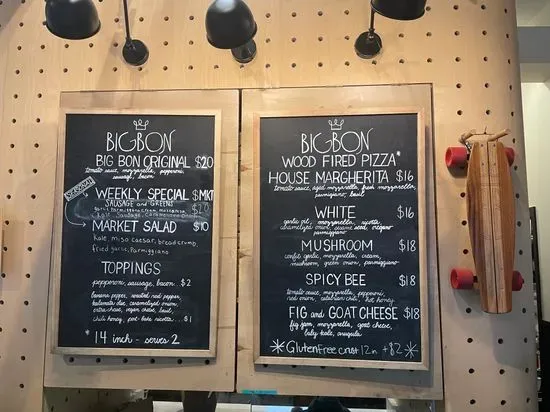 BIGBON
BIG BON ORIGINAL $20
tomato sauce, mozzarella, pepperoni,
sausage, bacon
SEASONAL
WEEKLY SPECIAL $MKT
SAUSAGE and GREENS $20
kale, sausage, caramelized onion
MARKET SALAD $10
Kale, miso caesar, bread crumb,
fried garlic, parmiggiano
TOPPINGS
pepperoni, sausage, bacon $2
banana pepper, roasted red pepper,
kalamata olive, caramelized onion,
extra cheese, vegan cheese, basil,
chili honey, post-bake ricotta... $1
*14 inch - serves 2
BIGBON
WOOD FIRED PIZZA*
HOUSE MARGHERITA $16
tomato sauce, aged mozzarella, fresh mozzarella,
parmigiano, basil
WHITE $16
garlic oil, mozzarella, ricotta,
caramelized onion, sesame seed, oregano
parmiggiano
MUSHROOM $18
confit garlic, mozzarella, cream,
mushroom, green onion, parmiggiano
SPICY BEE $18
tomato sauce, mozzarella, pepperoni,
red onion, calabrian chili, hot honey
FIG and GOAT CHEESE $18
fig jam, mozzarella, goat cheese,
baby kale, arugula
*Gluten Free crust 12in +$2*